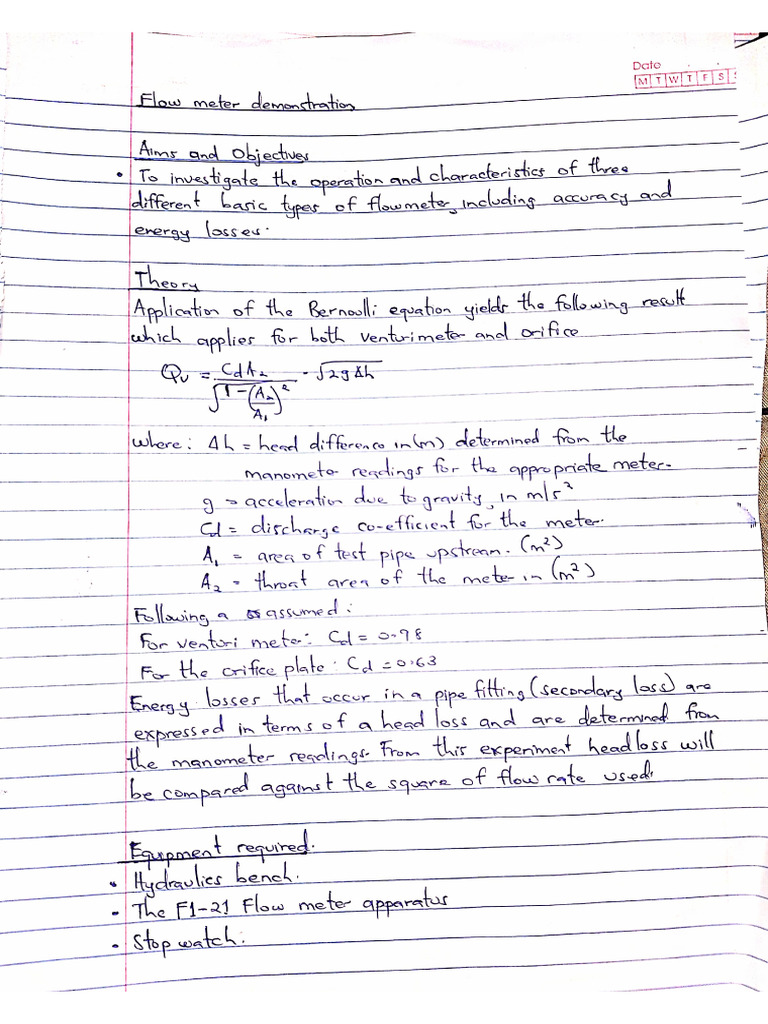 Date
M T W T F S
Flow meter demonstration
Aims and Objectives
• To investigate the operation and characteristics of three
different basic types of flowmeter, including accuracy and
energy losses.
Theory
Application of the Bernoulli equation yields the following result
which applies for both venturimeter and orifice
Qv = CdA₂ / √(1-(A₂/A₁)²) · √2gΔh
where: Δh = head difference in(m) determined from the
manometer readings for the appropriate meter.
g = acceleration due to gravity, in m/s²
Cd = discharge co-efficient for the meter.
A₁ = area of test pipe upstream. (m²)
A₂ = throat area of the meter in (m²)
Following a assumed:
For venturi meter: Cd = 0.98
For the orifice plate: Cd = 0.63
Energy losses that occur in a pipe fitting (secondary loss) are
expressed in terms of a head loss and are determined from
the manometer readings. From this experiment headloss will
be compared against the square of flow rate used.
Equipment required.
• Hydraulics bench.
- The F1-21 Flow meter apparatus
- Stop watch.